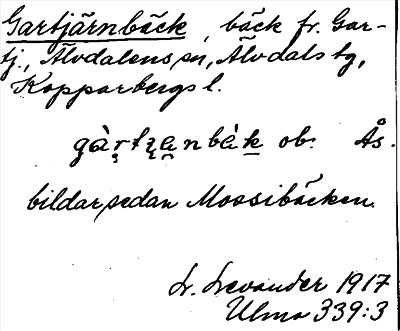 Gartjärnbäck, bäck fr. Gar-
tj., Älvdalens sn, Älvdals tg,
Kopparbergs l.
gàrtʐa̯nbàk ob. Ås.
bildar sedan Mossibäcken.
L. Levander 1917
Ulma 339:3